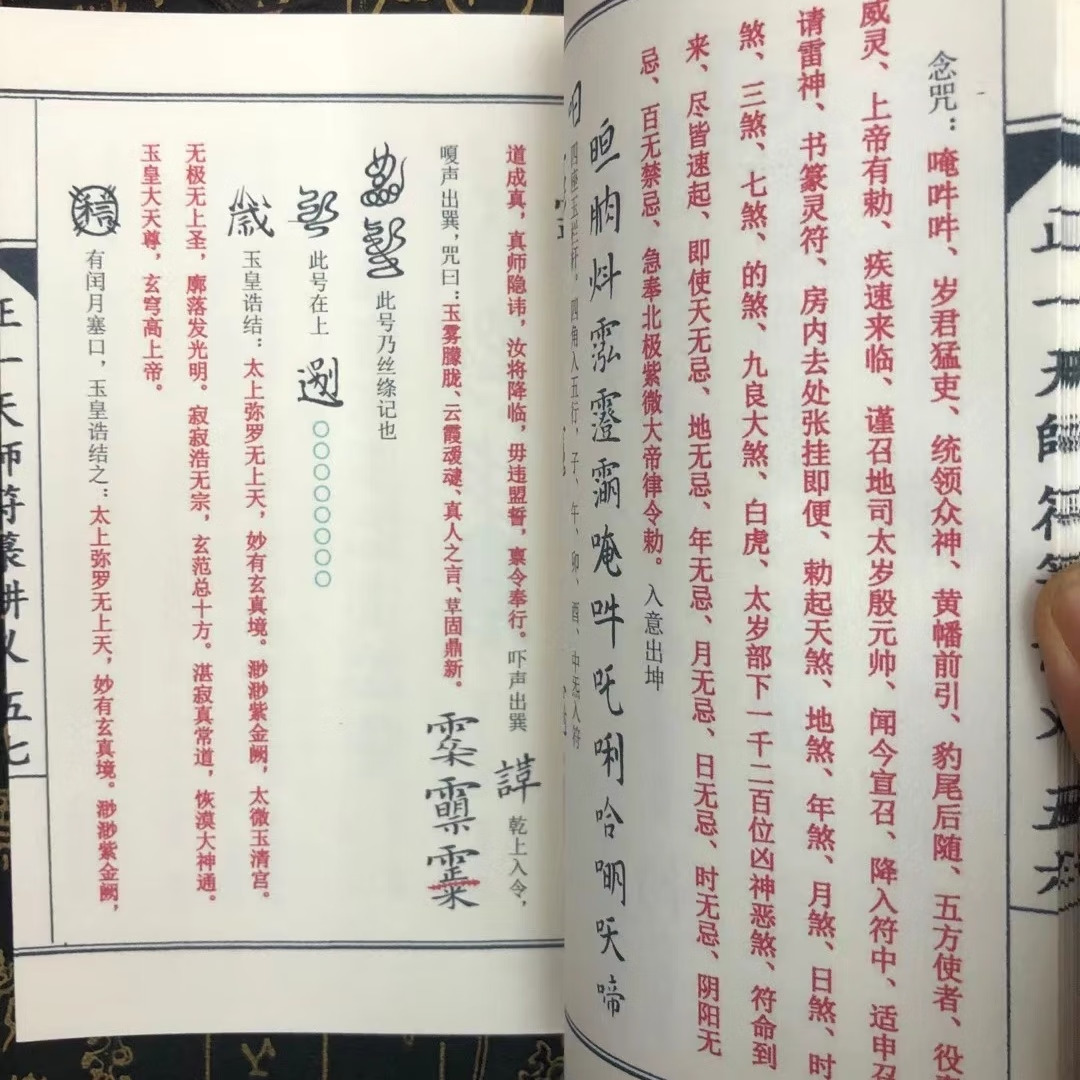 念咒：唵吽吽、岁君猛吏、统领众神、黄幡前引、豹尾后随、五方使者、役
威灵、上帝有勅、疾速来临、谨召地司太岁殷元帅、闻今宣召、降入符中、适申召
请雷神、书篆灵符、房内去处张挂即便、勅起天煞、地煞、年煞、月煞、日煞、时
煞、三煞、七煞、的煞、九良大煞、白虎、太岁部下一千二百位凶神恶煞、符命到
来、尽皆速起、即使天无忌、地无忌、年无忌、月无忌、日无忌、时无忌、阴阳无
忌、百无禁忌、急奉北极紫微大帝律令勅。入意出坤
唵吽吒唎哈
四座玉栏杆。四角入五行，子、午、卯、酉、中 入符
正一天师符箓
道成真，真师隐讳，汝将降临，毋违盟誓，禀令奉行。吓声出巽 乾上入令，
嗄声出巽，咒曰：玉雾朦胧、云霞叆叇、真人之言、草固鼎新。
此号乃丝绦记也
此号在上 〇〇〇〇〇〇〇〇
玉皇诰结：太上弥罗无上天，妙有玄真境。渺渺紫金阙，太微玉清宫。
无极无上圣，廓落发光明。寂寂浩无宗，玄范总十方。湛寂真常道，恢漠大神通。
玉皇大天尊，玄穹高上帝。
有闰月塞口，玉皇诰结之：太上弥罗无上天，妙有玄真境。渺渺紫金阙，
正一天师符箓讲义 五七